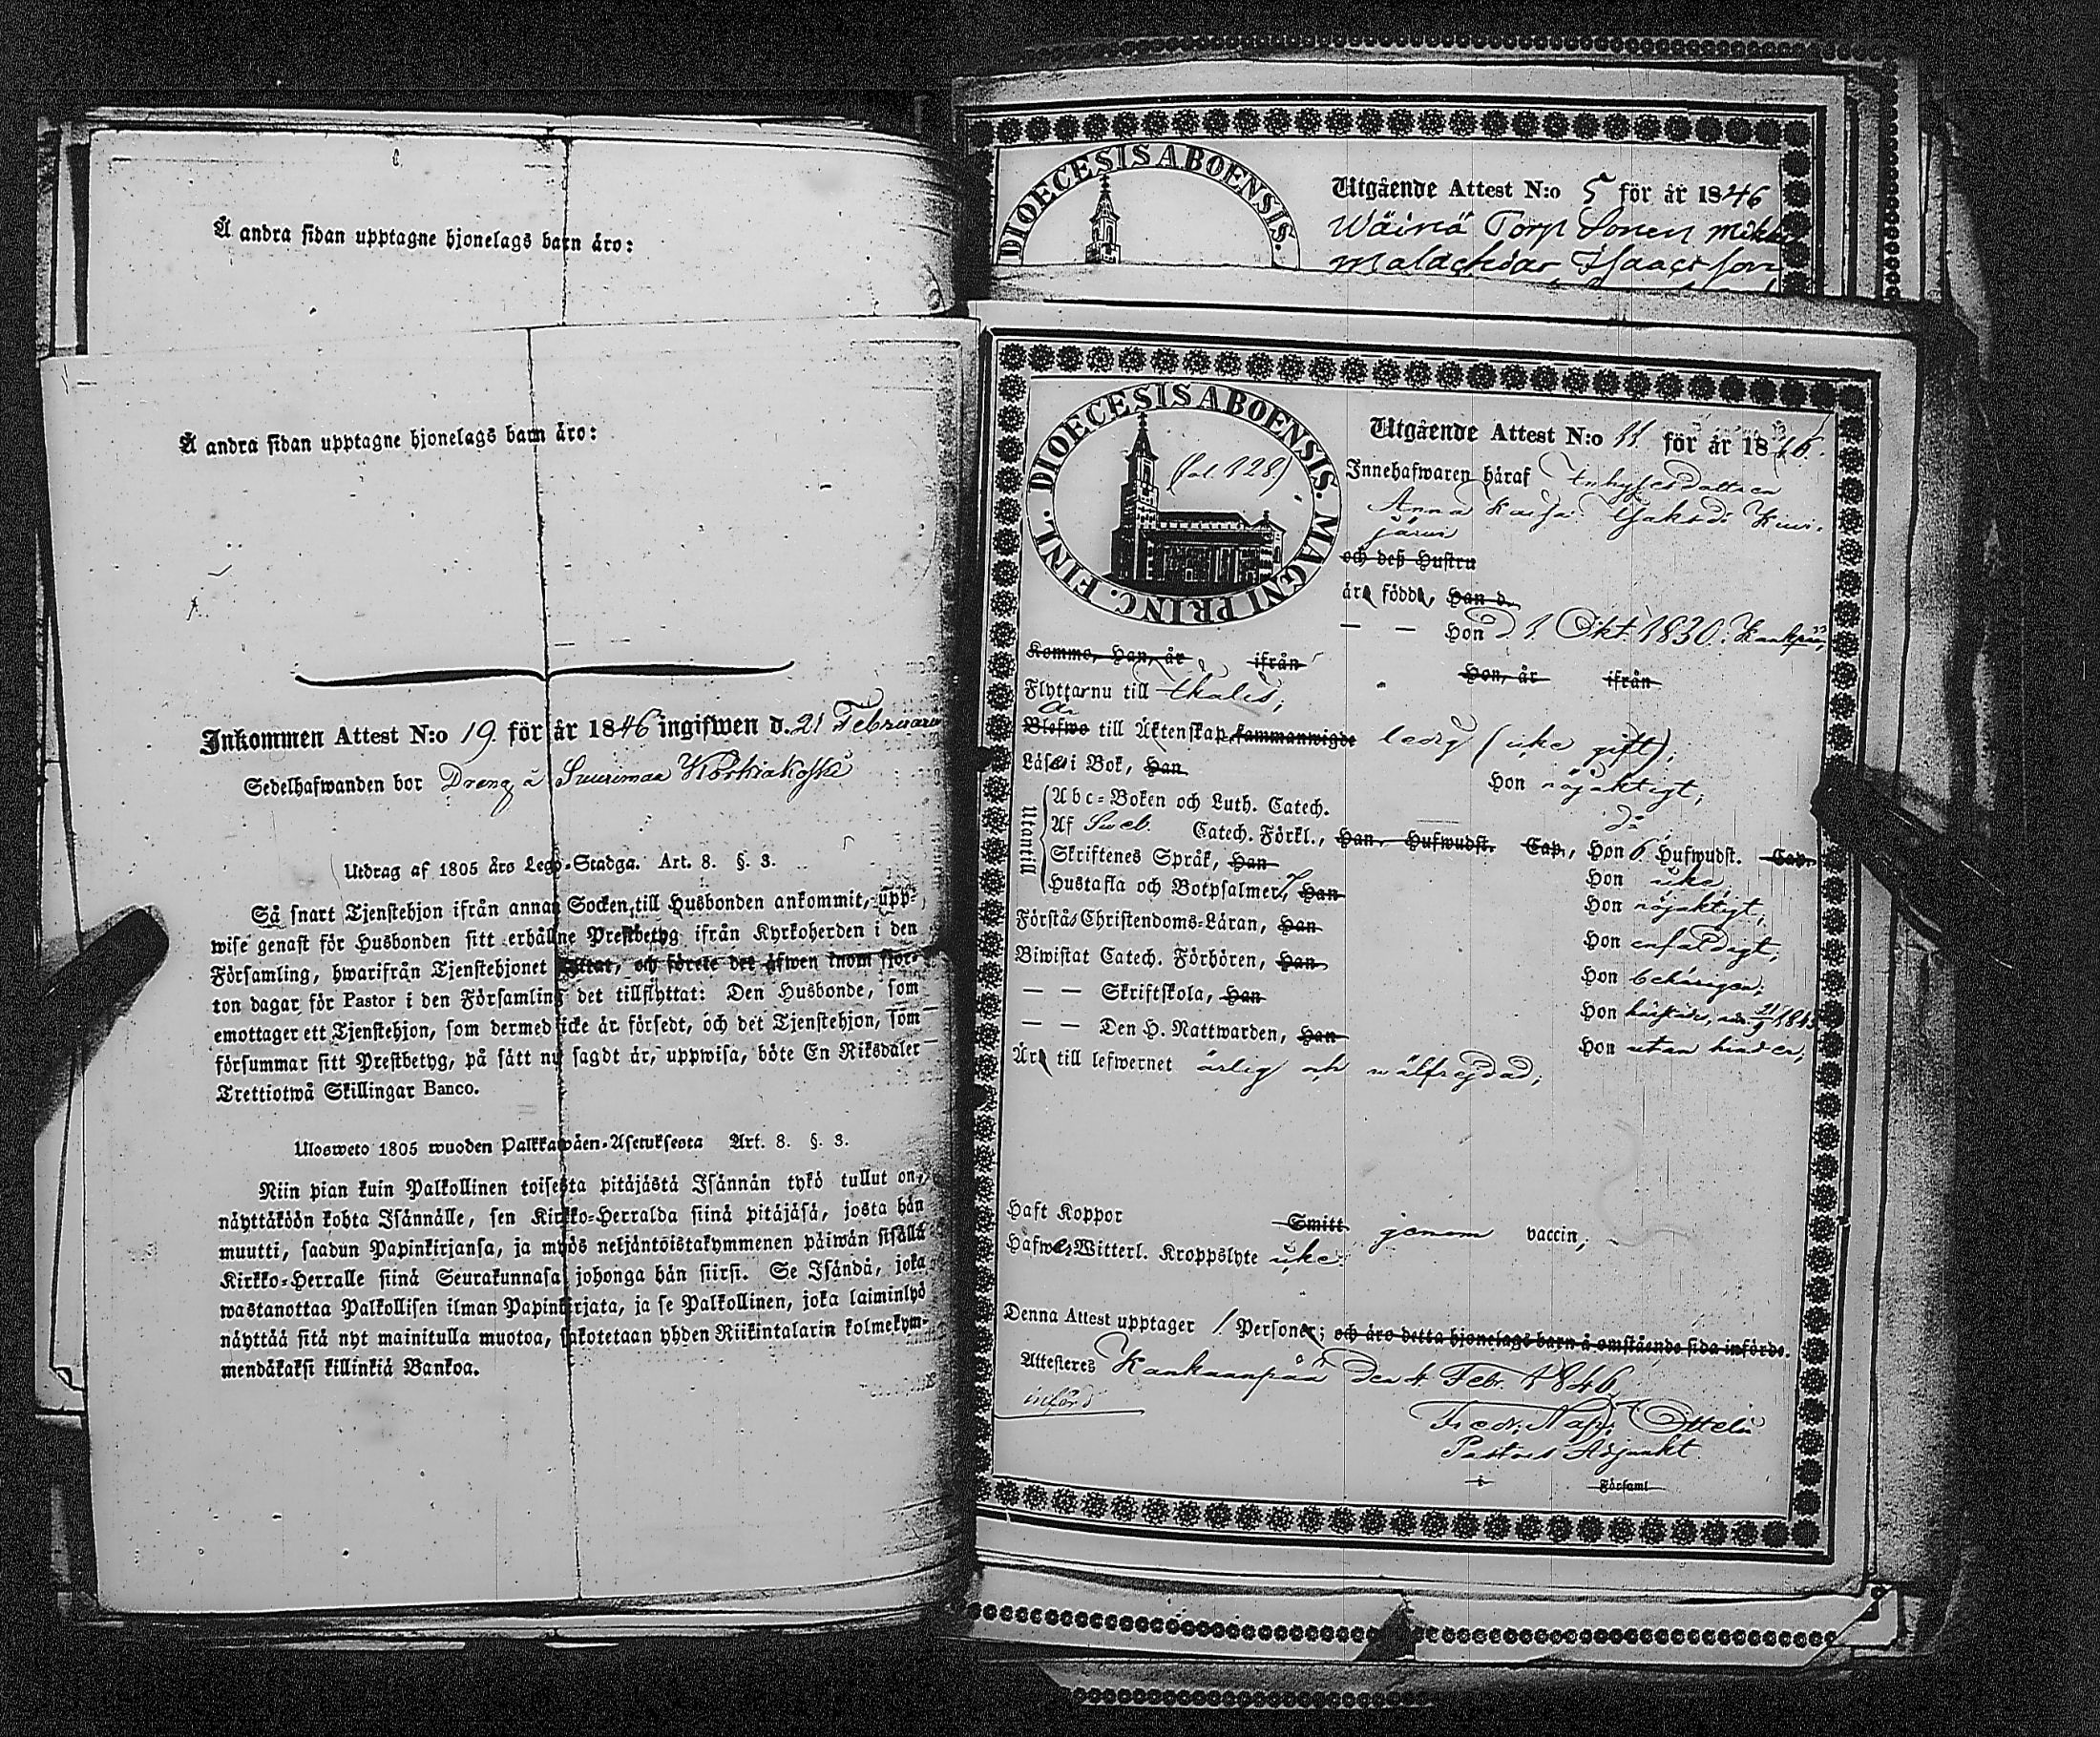 Å andra sidan upptagne hjonelags barn äro:
Å andra sidan upptagne hjonelags barn äro:
Inkommen Attest N:o 19 för år 1846 ingifwen d. 21 Februari
Sedelhafwanden bor Dreng å Suurimaa
Utdrag af 1805 års Lego-Stadga. Art. 8. §. 3.
Så snart Tjenstehjon ifrån annan Socken, till Husbonden ankommit, upp-
wise genast för Husbonden sitt erhållne Prestbetyg ifrån Kyrkoherden i den
Församling, hwarifrån Tjenstehjonet flyttat, och förete det äfwen inom fjor-
ton dagar för Pastor i den Församling det tillflyttat: Den Husbonde, som
emottager ett Tjenstehjon, som dermed icke är försedt, och det Tjenstehjon, som
försummar sitt Prestbetyg, på sätt nu sagdt är, uppwisa, böte En Riksdaler
Trettiotwå Skillingar Banco.
Ulosweto 1805 wuoden Palkkawäen-Asetuksesta Art. 8. §. 3.
Niin pian kuin Palkollinen toisesta pitäjästä Isännän tykö tullut on,
näyttäköön kohta Isännälle, sen Kirkko-Herralda siinä pitäjäsä, josta hän
muutti, saadun Papinkirjansa, ja myös neljäntoistakymmenen päiwän sisällä
Kirkko-Herralle siinä Seurakunnasa johonga hän siirsi. Se Isändä, joka
wastanottaa Palkollisen ilman Papinkirjata, ja se Palkollinen, joka laiminlyö
näyttää sitä nyt mainitulla muotoa, sakotetaan yhden Riikintalarin kolmekym-
mendäkaksi killinkiä Bankoa.
DIOECESIS ABOENSIS.
Utgående Attest N:o 5 för år 1846
Wäinä Torp Sonen
Malachias Isaacsson
DIOECESIS ABOENSIS. MAGNI PRINC. FINL.
(fol. 128)
Utgående Attest N:o 11. för år 1846.
Innehafwaren häraf Inhysesdottren
Anna Kaisa Jakobd. Kiwi-
järwi
och deß Hustru
äro födde, Han d.
— — Hon d. 1 Okt. 1830. Kankpää,
Komme, Han, år ifrån
Hon, år ifrån
Flyttar nu till Ikalis;
Är
Blefwo till Äktenskap sammanwigde ledig (icke gift);
Läse i Bok, Han Hon nöjaktigt;
Utantill
Abc-Boken och Luth. Catech. do
Af Sweb. Catech. Förkl., Han Hufwudst. Cap., Hon 6 Hufwudst. Cap.
Skriftenes Språk, Han Hon icke,
Hustafla och Botpsalmer, Han Hon nöjaktigt,
Förstå Christendoms-Läran, Han Hon enfaldigt,
Biwistat Catech. Förhören, Han Hon behörigen,
— — Skriftskola, Han Hon
— — Den H. Nattwarden, Han Hon utan hinder,
Äro till lefwernet ärlig och wälfrejdad;
Haft Koppor Smitt genom vaccin,
Hafwer Witterl. Kroppslyte icke.
Denna Attest upptager 1 Personer; och äro detta hjonelags barn å omstående sida införde.
Attesteres Kankaanpää den 4 Febr. 1846
införd
Pastors Adjunkt.
i Församl.